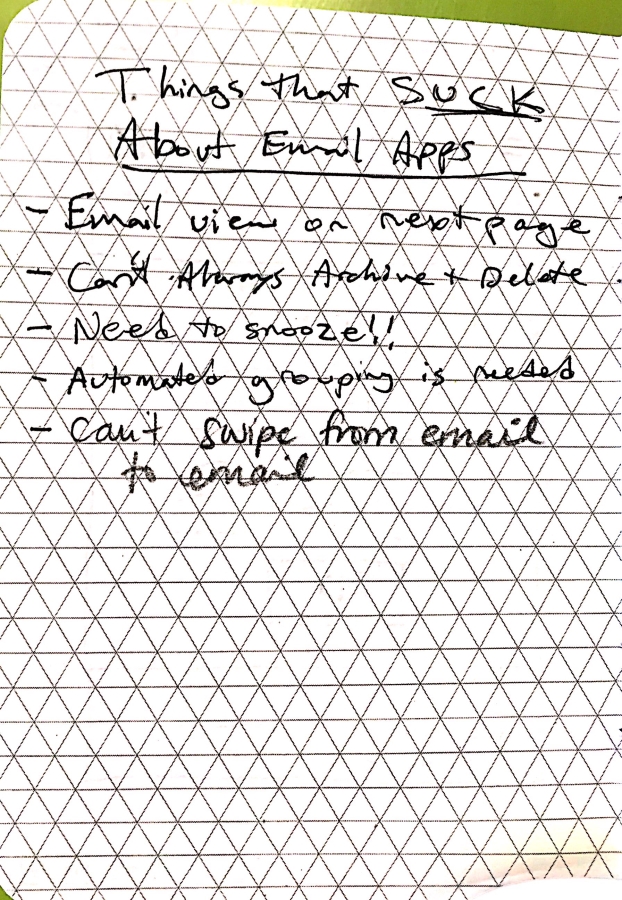 Things that SUCK
About Email Apps
- Email view on next page
- Can't Always Archive + Delete
- Need to snooze!!
- Automated grouping is needed
- Can't swipe from email
to email